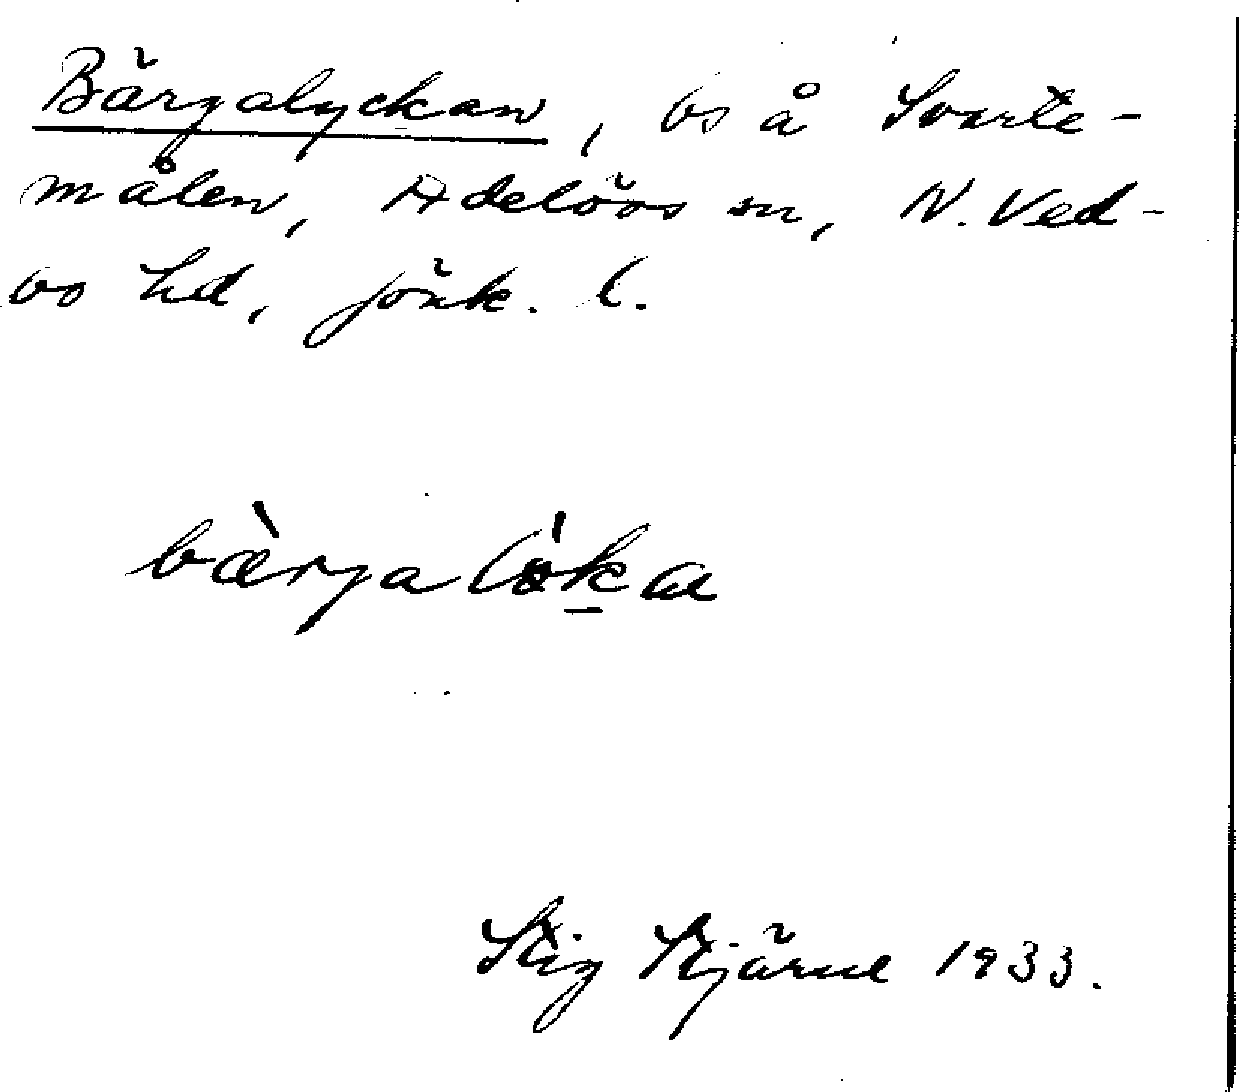 Bärgalyckan, bs å Svarte-
målen, Adelövs sn, N. Ved-
bo hd, Jönk. l.
bæ̀rjalö́ka
Stig Stjärne 1933.